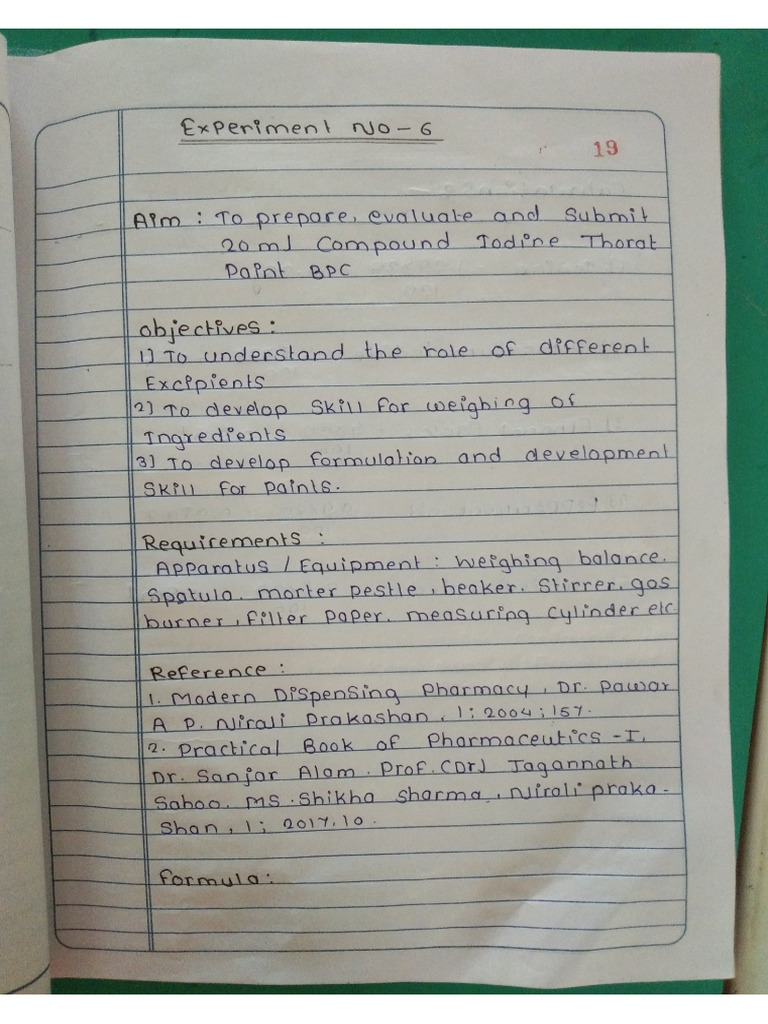 Experiment No - 6
19
Aim : To prepare, evaluate and submit
20 ml Compound Iodine Thorat
Paint BPC
objectives :
1) To understand the role of different
Excipients
2) To develop skill for weighing of
Ingredients
3) To develop formulation and development
skill for paints.
Requirements :
Apparatus / Equipment : weighing balance.
Spatula. morter pestle, beaker. Stirrer. gas
burner, filter paper. measuring cylinder etc
Reference :
1. Modern Dispensing Pharmacy, Dr. Pawar
A P. Nirali Prakashan, 1; 2004; 157.
2. Practical Book of Pharmaceutics - I.
Dr. Sanjar Alam. Prof. (Dr) Jagannath
Sahoo. MS. Shikha Sharma, Nirali praka-
shan, 1; 2017.10.
Formula: